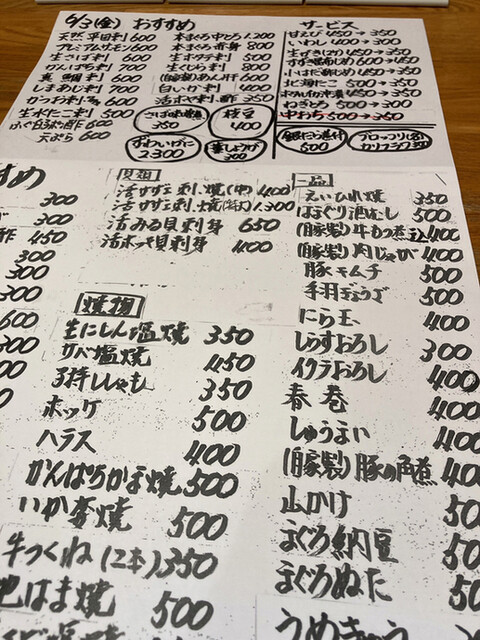 6/3(金) おすすめ
天然平目刺 600
プレミアムサーモン 600
生さば刺 600
かんぱち刺 700
真鯛刺 600
しまあじ刺 700
かつお刺
生水だこ刺 500
ふぐ白子ポン酢 600
天ぷら 600
本まぐろ中とろ 1.200
本まぐろ赤身 800
生ホタテ刺 500
生くじら刺 800
(自家製)あん肝 600
白いか刺 400
活ホヤ刺・酢 350
さば味噌煮 350
枝豆 400
ずわいがに 2.300
300
サービス
甘えび 450→350
いわし 400→300
生がき(2ヶ) 450→350
350
小はだ 450→350
北海たこ 500→300
350
ねぎとろ 500→300
中おち 500→350
銀だら煮付 600
ブロッコリー
カリフラワー
すめ
300
300
酢 450
300
300
300
600
300
貝類
活サザエ刺、焼(中) 400
活サザエ刺、焼(特大) 1.300
活みる貝刺身 650
活ホッキ貝刺身 400
焼物
生にしん塩焼 350
サバ塩焼 450
子持ししゃも 350
ホッケ 500
ハラス 400
かんぱちかま焼 500
いか姿焼 500
牛つくね(2本) 350
地はま焼 500
一品
えいひれ焼 350
はまぐり酒むし 500
(自家製)牛もつ煮込 400
(自家製)肉じゃが 400
豚キムチ 500
手羽ギョーザ 500
にら玉 400
しらすおろし 300
イクラおろし 400
春巻 400
しゅうまい 400
(自家製)豚の角煮 400
山かけ 50
まぐろ納豆 50
まぐろぬた 50
うめきゅう